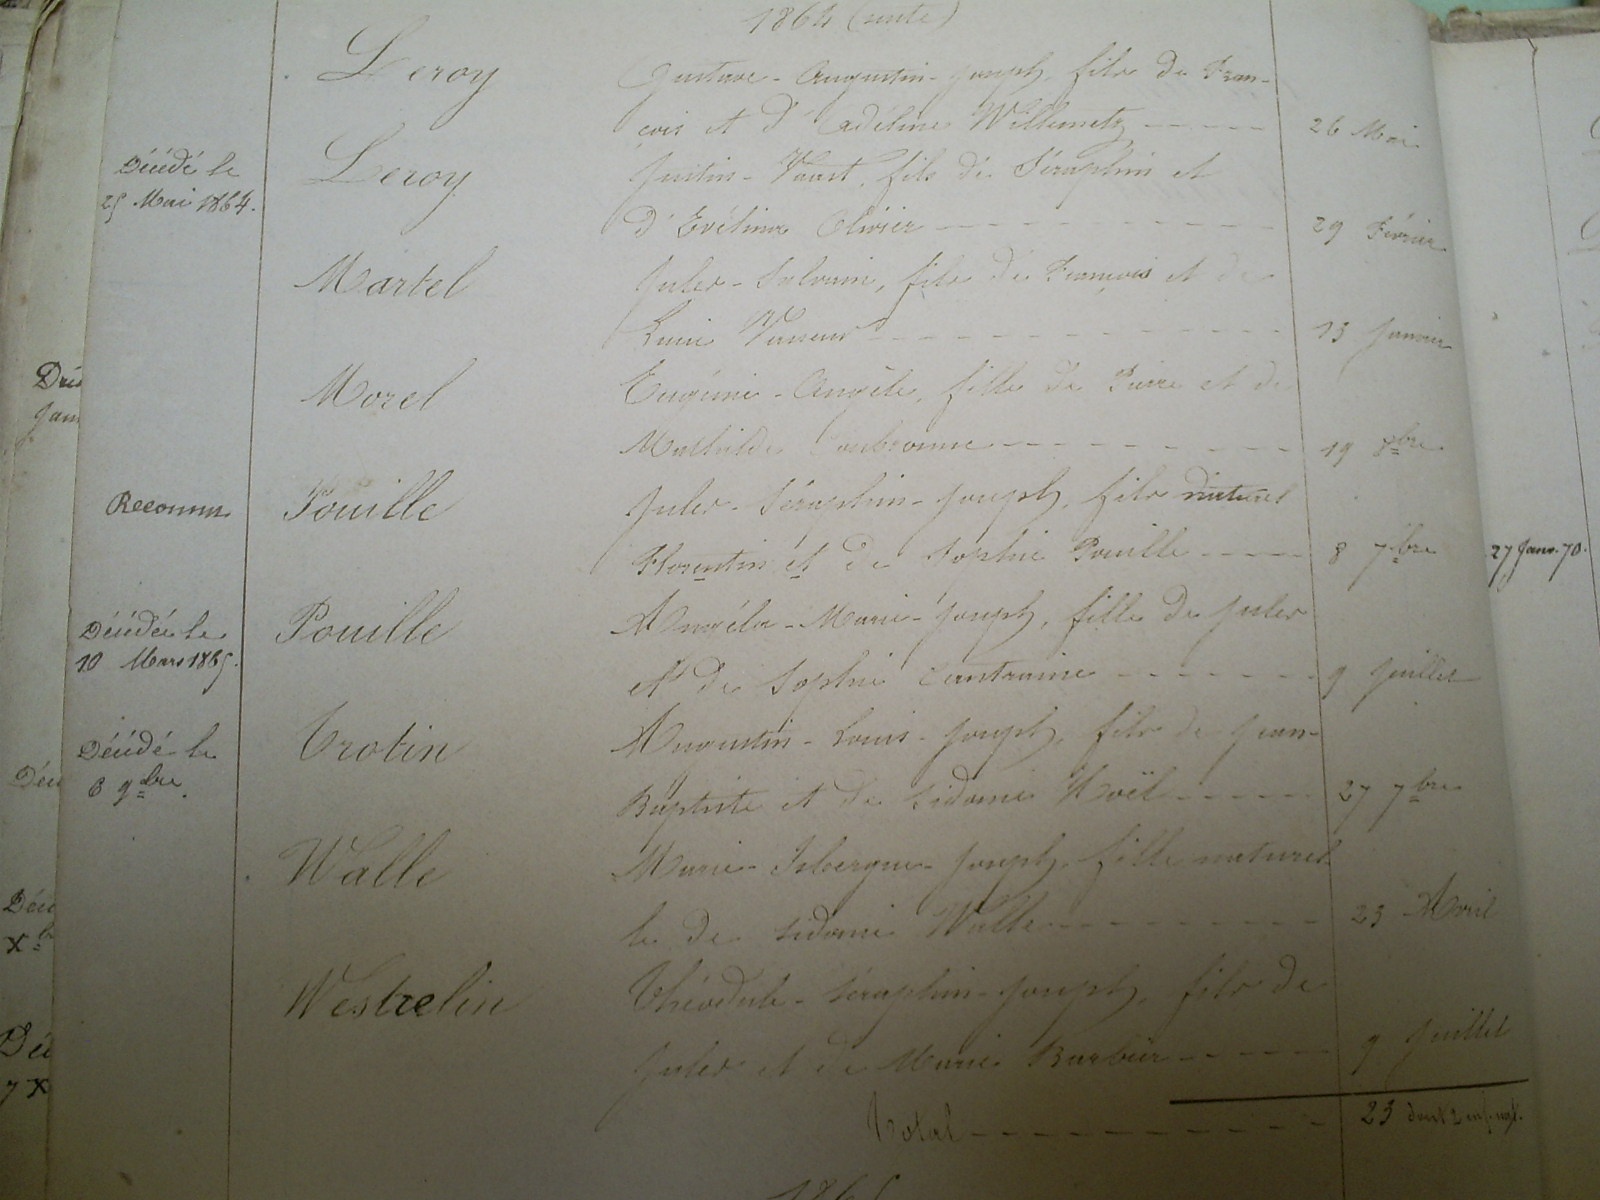 1864 (suite)
Leroy Gustave - Augustin - Joseph, fils de Fran-
çois et d'Adéline Willemetz ----- 26 Mai
Décédé le Leroy Justin - Vaast, fils de Séraphin et
25 Mai 1864. d'Evélina Olivier ----- 29 Février
Martel Jules - Sylvain, fils de François et de
Lucie Vasseur ----- 13 Janvier
Morel Eugénie - Angèle, fille de Pierre et de
Mathilde Coubronne ----- 19 8bre
Reconnu Pouille Jules - Séraphin - Joseph, fils naturel
Florentin et de Sophie Pouille ----- 8 7bre 27 Janv. 70.
Décédée le Pouille Angéla - Marie - Joseph, fille de Jules
10 Mars 1865. et de Sophie Cantraine ----- 9 Juillet
Décédé le Trotin Augustin - Louis - Joseph, fils de Jean-
6 9bre. Baptiste et de Sidonie Noël ----- 27 7bre
Walle Marie - Isbergue - Joseph, fille naturel
le de Sidonie Walle ----- 23 Avril
Westrelin Théodule - Séraphin - Joseph, fils de
Jules et de Marie Barbier ----- 9 Juillet
Total ----- 23 dont 2 enf. nat.